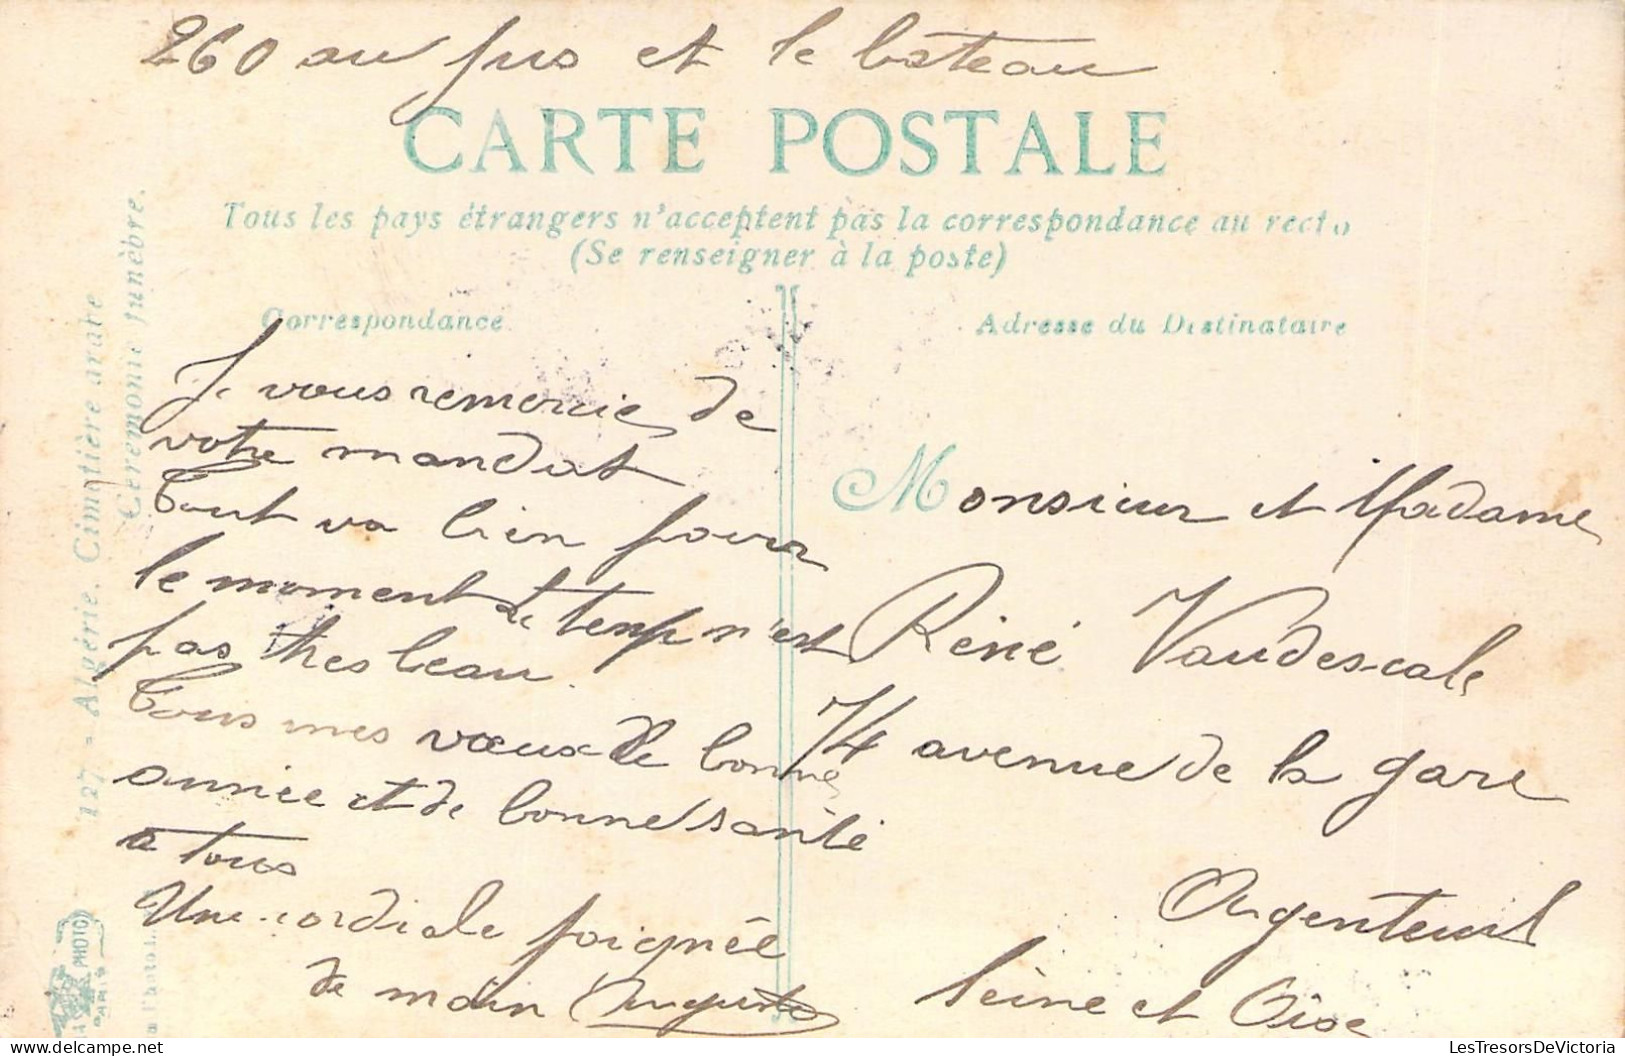 260 au jus et le bateau
CARTE POSTALE
Tous les pays étrangers n'acceptent pas la correspondance au recto
(Se renseigner à la poste)
Correspondance
Adresse du Distinataire
Je vous remercie de
votre mandat
Tout va bien pour
le moment le temp n'est
pas thes beau.
Tous mes vœux de bonne
année et de bonne santé
a tous
Une cordiale poignée
de main Auguste
Monsieur et Madame
Réné Vaudescale
74 avenue de la gare
Argenteuil
Seine et Oise
127 - Algérie. Cimetière arabe
Cérémonie funèbre.
PHOTO
PARIS
LesTresorsDeVictoria